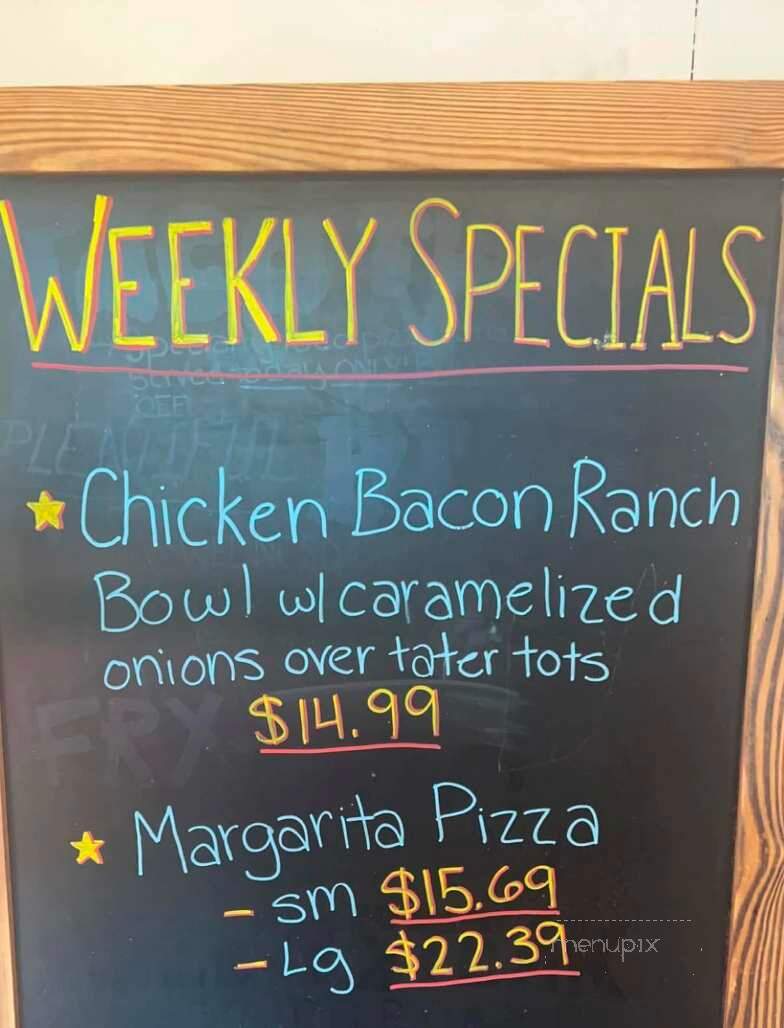 WEEKLY SPECIALS
Chicken Bacon Ranch
Bowl w/caramelized
onions over tater tots
$14.99
Margarita Pizza
- sm $15.69
- Lg $22.39
menupix